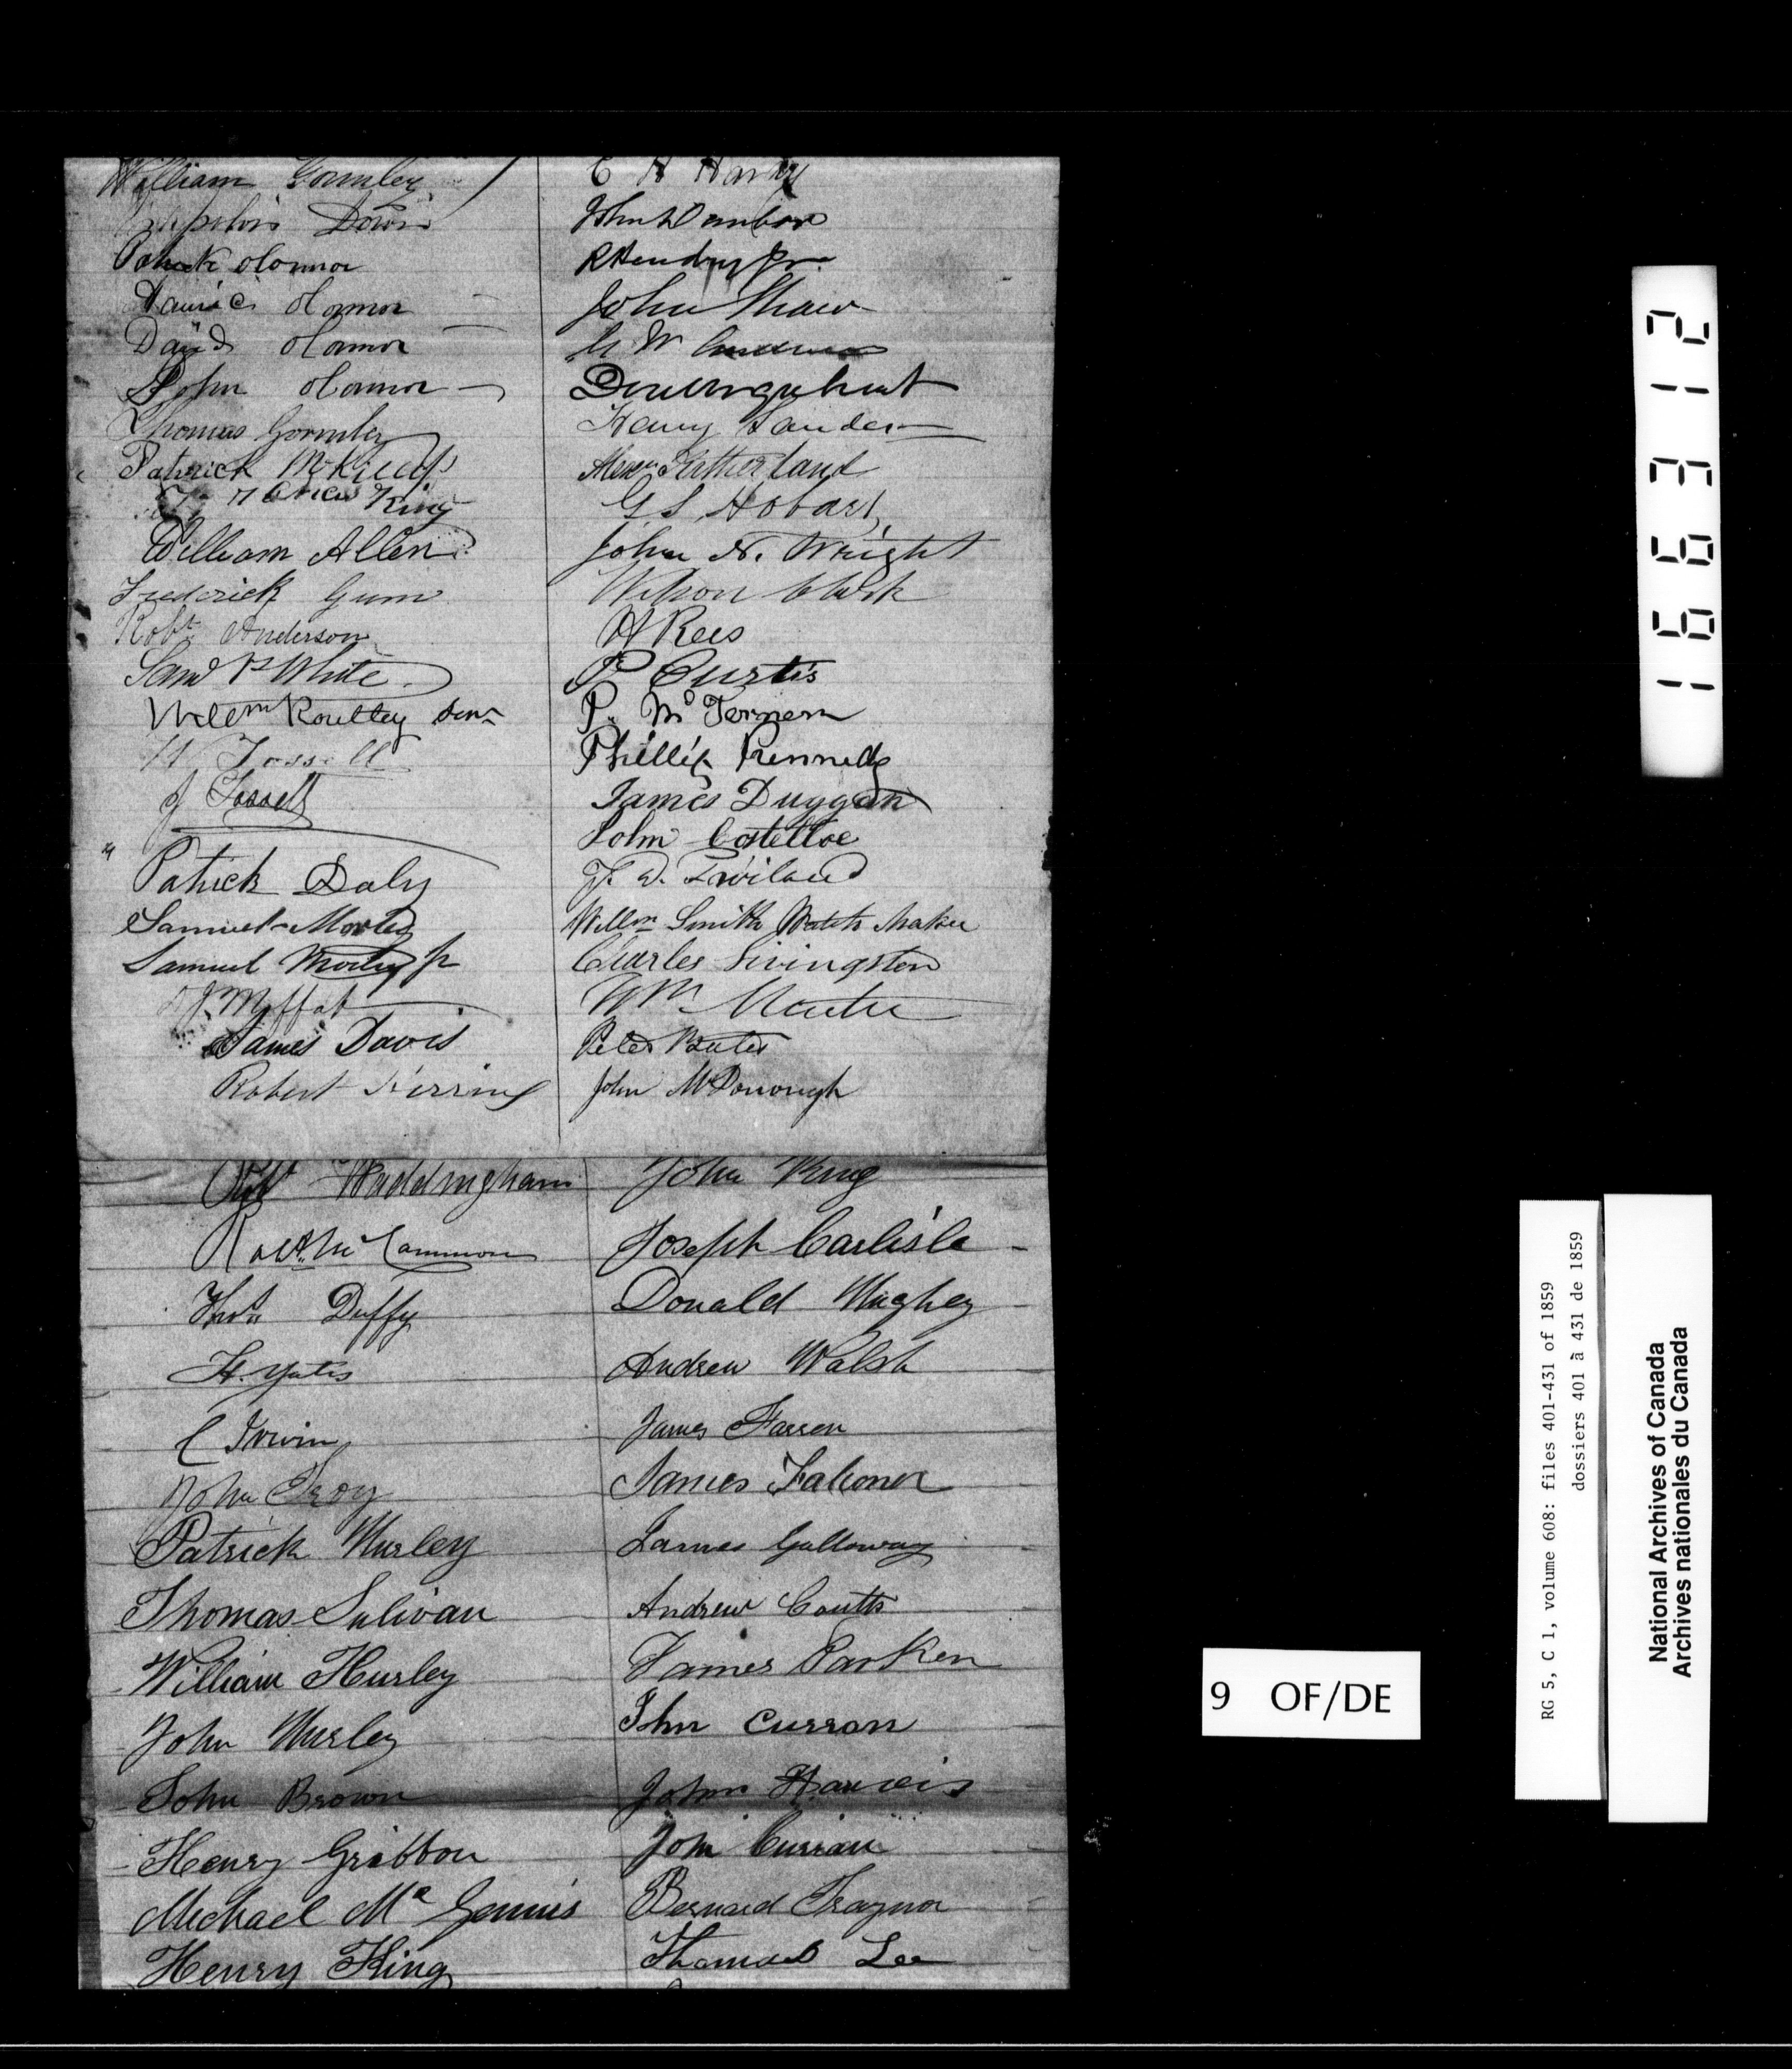 William Gormley
Patrick oConnor
oConnor
David oConnor
John oConnor
Thomas Gormley
Patrick
King
William Allen
Frederick Gum
Robt Anderson
Saml White
Willm Routley Senr
W Fossell
J Fossell
Patrick Daly
Samuel Morley
Samuel Morley Jr
J Moffat
James Davis
Robert Herring
C H
John Dunbar
R Hendry Jr
John Shaw
G W
Urquhart
Harry Sander
Alexr Sutherland
G S Hobart
John N. Wright
Wilson Clark
H Rees
P Curtis
P. McTernem
Phillip Kennedy
James Duggan
John Costelloe
Willm Smith Watch Maker
Charles Livingston
Wm Martin
Peter Bates
John McDonough
Robt Waddingham
Robt McCammon
Thos Duffy
H. Yates
C Irwin
John Troy
Patrick Hurley
Thomas Sulivan
William Hurley
John Hurley
John Brown
Henry Gribbon
Michael Mc Gennis
Henry King
John King
Joseph Carlisle
Donald Hughey
Andrew Walsh
James Farren
James Falconer
James Galloway
Andrew Coutts
James Parker
Jhn Curran
John
John Curran
Bernard Traynor
Thomas Lee
9 OF/DE
166312
RG 5, C 1, volume 608: files 401-431 of 1859
dossiers 401 à 431 de 1859
National Archives of Canada
Archives nationales du Canada